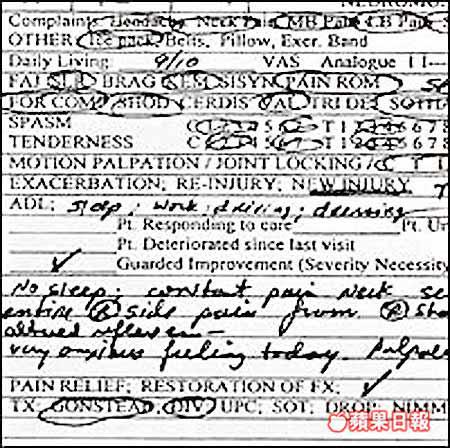 NEUROMU
Complaints: Headache Neck Pain MB Pain LB Pain
OTHER: Ice pack, Belts, Pillow, Exer. Band
Daily Living: 9/10 VAS Analogue 11—
FAJ SLR BRAG KEM SISYN PAIN ROM
FOR COMP SHOD CERDIS VAL TRI DE SOTH
SPASM C 1 2 3 4 5 6 7 T 1 2 3 4 5 6 7 8
TENDERNESS C 1 2 3 4 5 6 7 T 1 2 3 4 5 6 7 8
MOTION PALPATION / JOINT LOCKING / C T 1
EXACERBATION; RE-INJURY; NEW INJURY
ADL: sleep; work; driving; dressing
Pt. Responding to care Pt. Un
Pt. Deteriorated since last visit
Guarded Improvement (Severity Necessity
No sleep; constant pain neck
entire R side pain from R Sho
altered reflexes —
very anxious feeling today.
PAIN RELIEF; RESTORATION OF FX;
TX: GONSTEAD, DIV UPC; SOT; DROP; NIMM
蘋果日報